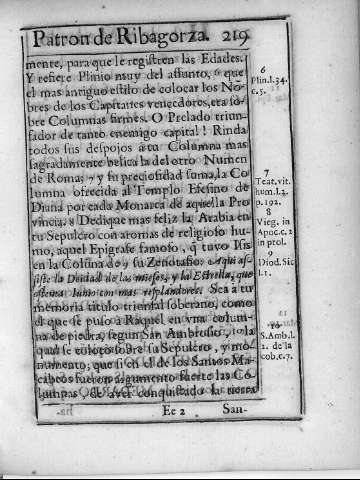 Patron de Ribagorza. 219
mente, para que le registren las Edades.
Y refiere Plinio muy del assunto, 6 que
el mas antiguo estilo de colocar los No-
bres de los Capitanes vencedores, era so-
bre Columnas firmes. O Prelado triun-
fador de tanto enemigo capital! Rinda
todos sus despojos à tu Columna mas
sagradamente belica la del otro Numen
de Roma; 7 y su preciosidad suma, la Co
lumna ofrecida al Templo Efesino de
Diana por cada Monarca de aquella Pro
vincia. 8 Dedique mas feliz la Arabia en
tu Sepulcro con aromas de religioso hu-
mo, aquel Epigrafe famoso, q̃ tuvo Isis
en la Colũna de 9 su Zenotafio: Aqui as-
siste la Deidad de las mieses, y la Estrella, que
con mas resplandores. Sea à tu
memoria titulo triunfal soberano, como
el que se puso à Raquel en una colum-
na de piedra, segun San Ambrosio, 10 la
qual se colocò sobre su Sepulcro, y mo-
numento; que si en el de los Santos Ma-
cabeos fueron argumento fuerte las Co-
lumnas, de aver conquistado la tierra
Ee 2 San-
6
Plin. l. 34.
c. 5.
7
Teat. vit.
hum. l. 3.
p. 192.
8
Vieg. in
Apoc. c. 2
in prol.
9
Diod. Sic
l. 1.
10
S. Amb. l.
2. de Ia
cob. c. 7.